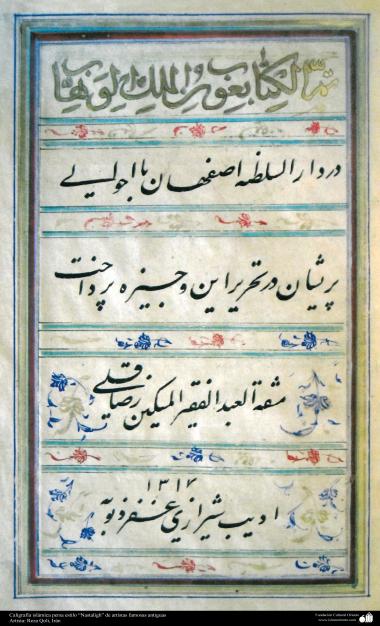 تمّ الکتاب بعون الملک الوهاب
در دار السلطنه اصفهان با احوالی
پریشان در تحریر این وجیزه پرداخت
مشقه العبد الفقیر المسکین رضاقلی
۱۳۱۲
ادیب شیرازی غفر ذنوبه
Caligrafía islámica persa estilo "Nastaligh" de artistas famosas antiguas
Artista: Reza Qoli, Irán
Fundación Cultural Oriente